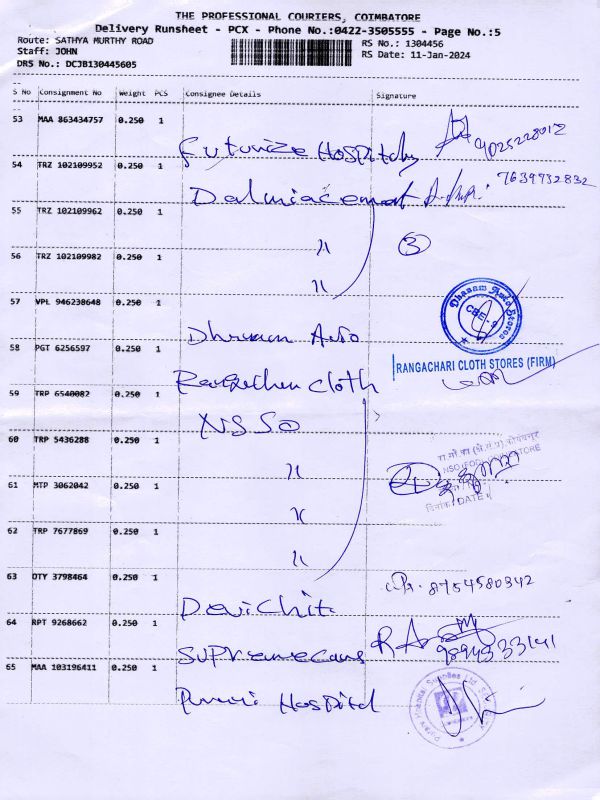 THE PROFESSIONAL COURIERS, COIMBATORE
Delivery Runsheet - PCX - Phone No.:0422-3505555 - Page No.:5
Route: SATHYA MURTHY ROAD
RS No.: 1304456
Staff: JOHN
RS Date: 11-Jan-2024
DRS No.: DCJB130445605
S No Consignment No Weight PCS Consignee Details Signature
53 MAA 863434757 0.250 1
Futurize Hospitaly 9025228012
54 TRZ 102109952 0.250 1
Dalmiacement 7639732832
55 TRZ 102109962 0.250 1
〃 3
56 TRZ 102109982 0.250 1
〃
57 VPL 946238648 0.250 1
Dhanam Auto Stores
CBE
Dhanam Auto
58 PGT 6256597 0.250 1
RANGACHARI CLOTH STORES (FIRM)
Rangachari cloth
59 TRP 6540082 0.250 1
NSSO
60 TRP 5436288 0.250 1
〃
61 MTP 3062042 0.250 1
〃
दिनांक / DATE
62 TRP 7677869 0.250 1
〃
63 OTY 3798464 0.250 1
8754580342
Devi Chit
64 RPT 9268662 0.250 1
Supremecans 9894333141
65 MAA 103196411 0.250 1
Hospital